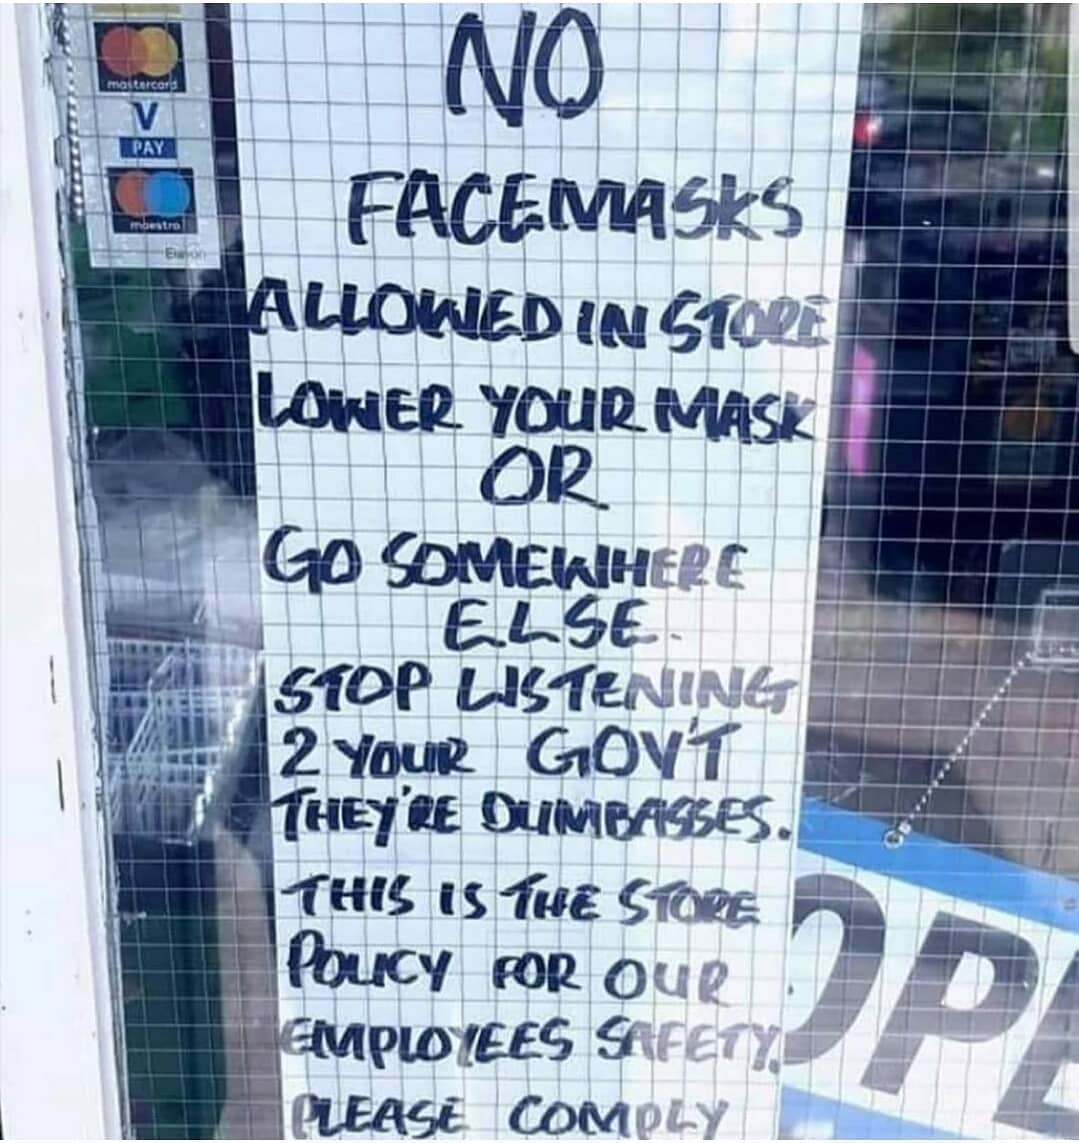 mastercard
V
PAY
maestro
NO
FACEMASKS
ALLOWED IN STORE
LOWER YOUR MASK
OR
GO SOMEWHERE
ELSE.
STOP LISTENING
2 YOUR GOV'T
THEY'RE DUMBASSES.
THIS IS THE STORE
POLICY FOR OUR
EMPLOYEES SAFETY.
PLEASE COMPLY
OPE